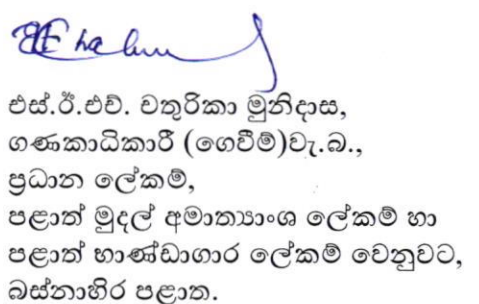 එස්.ඊ.එච්. චතුරිකා මුනිදාස,
ගණකාධිකාරී (ගෙවීම්)වැ.බ.,
ප්‍රධාන ලේකම්,
පළාත් මුදල් අමාත්‍යාංශ ලේකම් හා
පළාත් භාණ්ඩාගාර ලේකම් වෙනුවට,
බස්නාහිර පළාත.